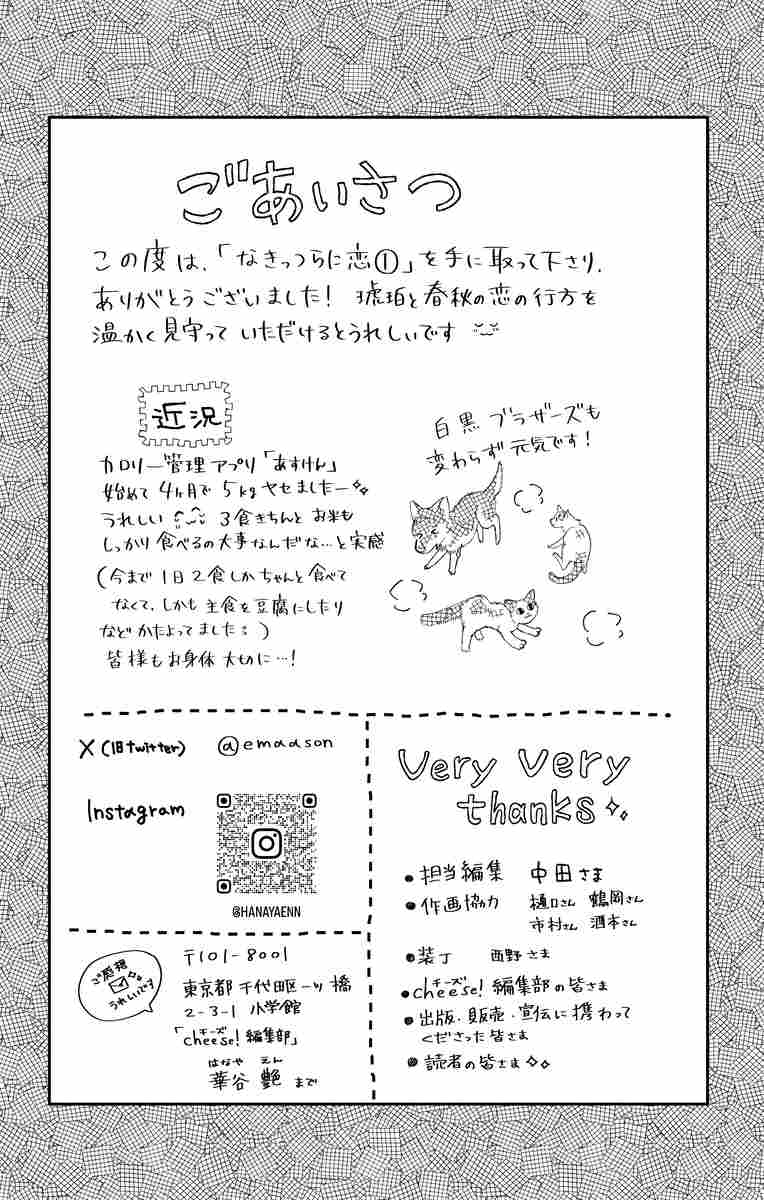 ごあいさつ
この度は、「なきっつらに恋①」を手に取って下さり、
ありがとうございました! 琥珀と春秋の恋の行方を
温かく見守っていただけるとうれしいです
近況
カロリー管理アプリ「あすけん」
始めて4ヶ月で5kgヤセましたー
うれしい 3食きちんとお米も
しっかり食べるの大事なんだな…と実感
(今まで1日2食しかちゃんと食べて
なくて、しかも主食を豆腐にしたり
などかたよってました:)
皆様もお身体大切に…!
白黒ブラザーズも
変わらず元気です!
X(旧twitter) @emadson
Instagram
@HANAYAENN
ご感想
うれしいです
〒101-8001
東京都千代田区一ツ橋
2-3-1 小学館
チーズ
「cheese!編集部」
はなや えん
華谷 艶 まで
Very Very
thanks
•担当編集 中田さま
•作画協力 樋口さん 鶴岡さん
市村さん 酒本さん
•装丁 西野さま
チーズ
•cheese!編集部の皆さま
•出版・販売・宣伝に携わって
くださった皆さま
•読者の皆さま